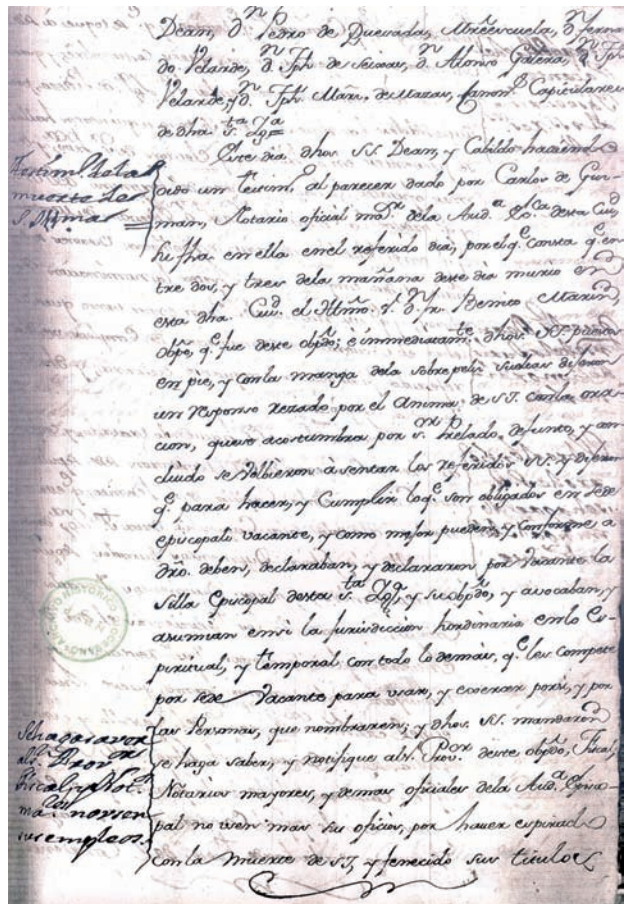 Dean, D.n Pedro de Quevada, Mrẽescuela, D.n ferna
do Velarde, D.n Jph de D.n Alonso Galera, D.n Jph
Velarde, y D.n Jph. Marñ. de Mazar, Canong.s Capitulares
de dha. s.ta Ygl.a =
Este dia dhos SS. Dean, y Cabildo haciend
oido un testim.o al parecer dado por Carlos de Guz-
man, Notario oficial ma.or dela Aud.a desta Ciu.d
su fha. en ella en el referido dia, por el q.e consta q.e en
tre dos, y tres dela mañana deste dia murio en
esta dha. Ciu.d el Illmo. S.r D.n fr. Benito Marin,
obpo, q.e fue deste obpdo; e inmediatam.te dhos. SS. puestos
en pie, y con la manga dela sobrepelis dixeron
un responso rezado por el Anima de S.I. con la ora-
cion, que se acostumbra por s.or Prelado defunto, y con
cluido se volbieron à sentar los referidos SS. y dixeron
q.e para hacer, y Cumplir lo q.e son obligados en Sede
episcopali vacante, y como mejor pueden, y conforme a
dro. deben, declaraban, y declararon por Vacante la
Silla Episcopal desta s.ta Ygl.a, y su obpdo, y avocaban, y
asumian en si la Jurisdiccion hordinaria en lo Es-
piritual, y temporal con todo lo demas, q.e les compete
por sede Vacante para usar, y exercer por si, y por
las Personas, que nombraren; y dhos. SS. mandaron
se haga saber, y notifique al s.r Prov.or deste obpdo, Fiscal,
Notarios mayores, y demas oficiales dela Aud.a Episco
pal no usen mas sus oficios, por hauer espirad
con la muerte de S.I, y fenecido sus titulos
Testim.o dela
muerte de
S. Yllma
Se haga saver
al s.r Prov.or
Fiscal, y Not.s
ma.res no usen
sus empleos.